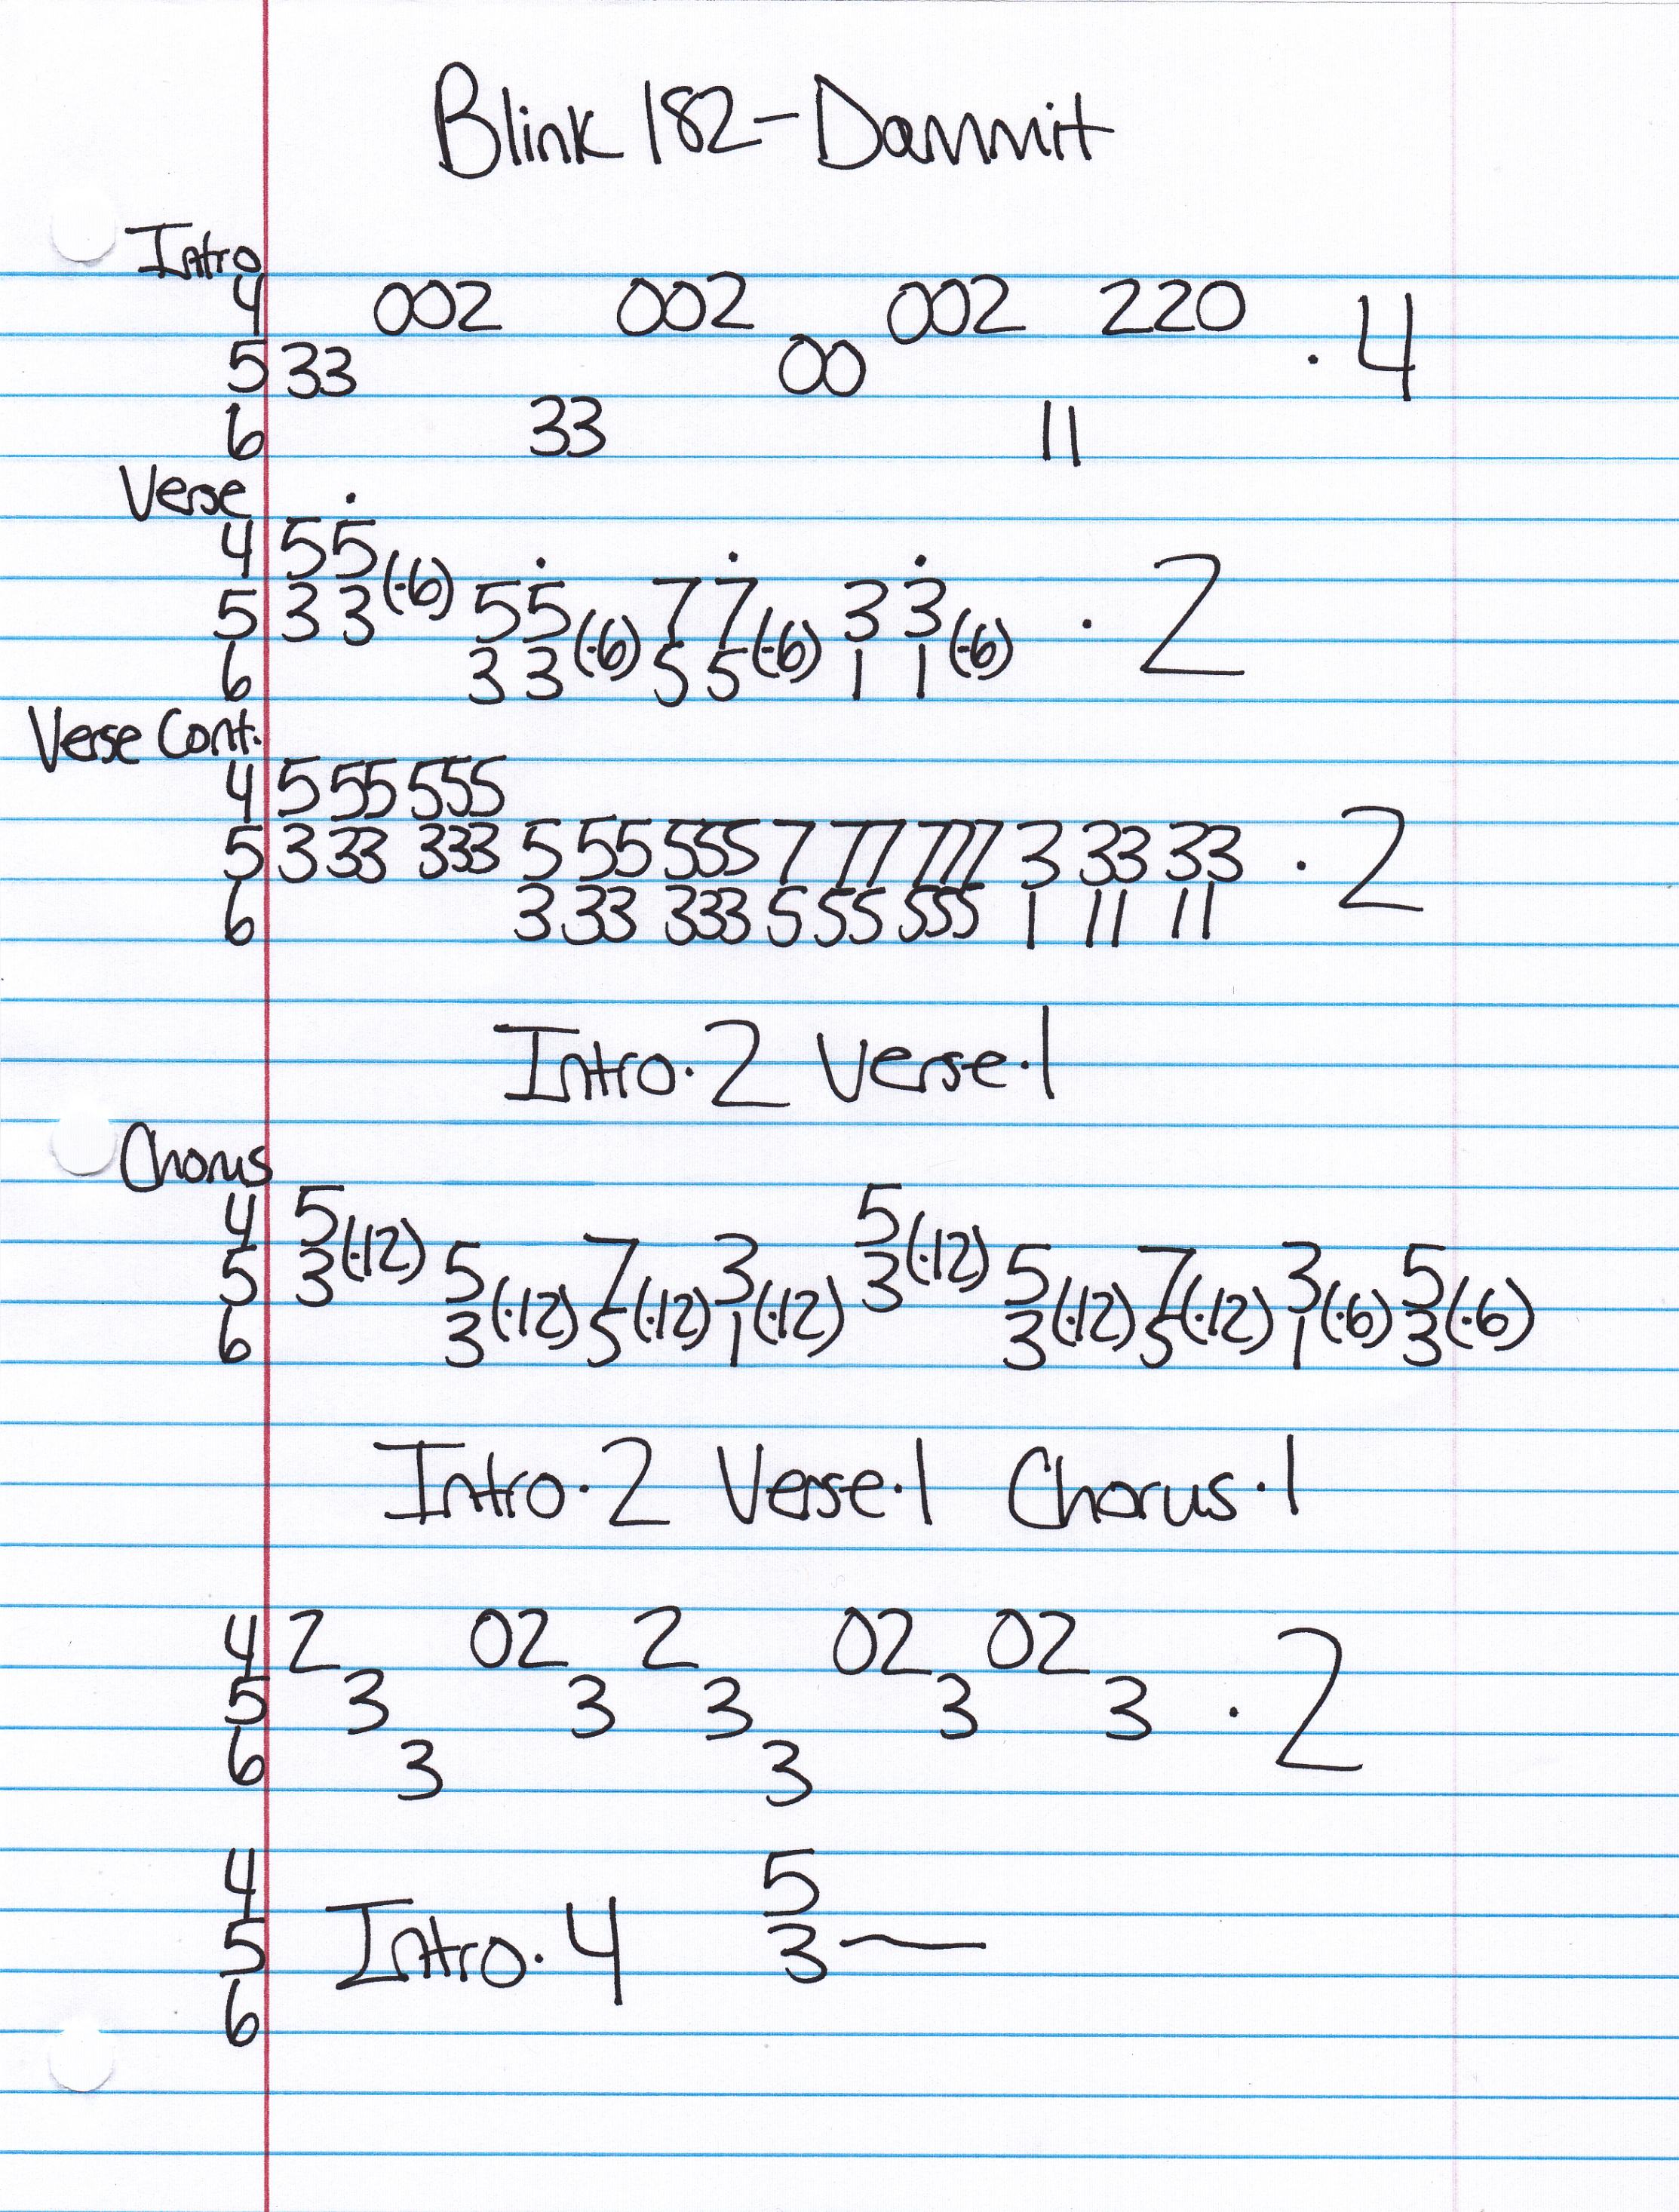 Blink 182-Dammit
Intro
4 002 002 002 220
5 33 00 · 4
6 33 11
Verse
4 55
5 33(·6) 55 77 33 · 2
6 33(·6) 55(·6) 11(·6)
Verse Cont.
4 5 55 555
5 3 33 333 5 55 555 7 77 777 3 33 33 · 2
6 3 33 333 5 55 555 1 11 11
Intro·2 Verse·1
Chorus
4 5 5
5 3(·12) 5 7 3 3(·12) 5 7 3 5
6 3(·12) 5(·12) 1(·12) 3(·12) 5(·12) 1(·6) 3(·6)
Intro·2 Verse·1 Chorus·1
4 2 02 2 02 02
5 3 3 3 3 3 · 2
6 3 3
4 5
5 Intro·4 3—
6